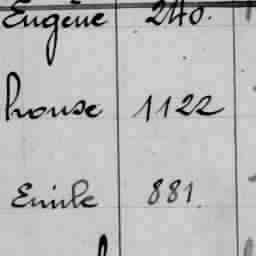 Eugène 240.
house 1122
Emile 881.